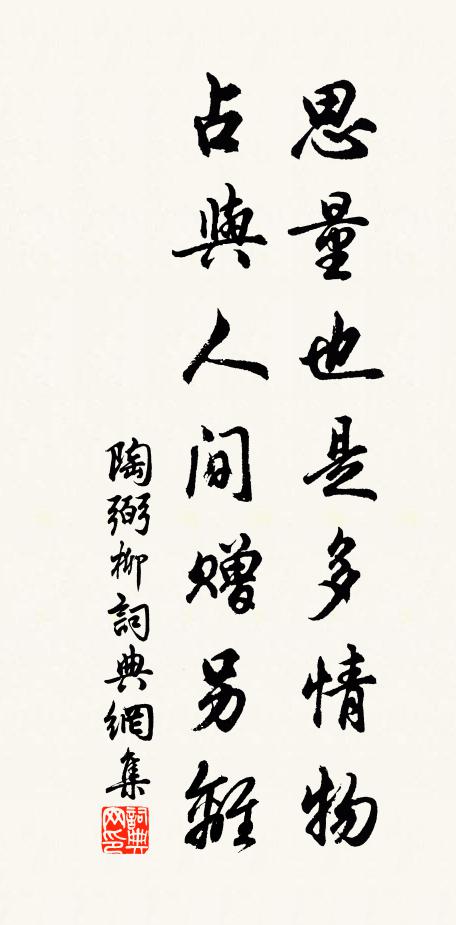 思量也是多情物
占與人間贈另離
陶弼柳詞典網集
詞典網印